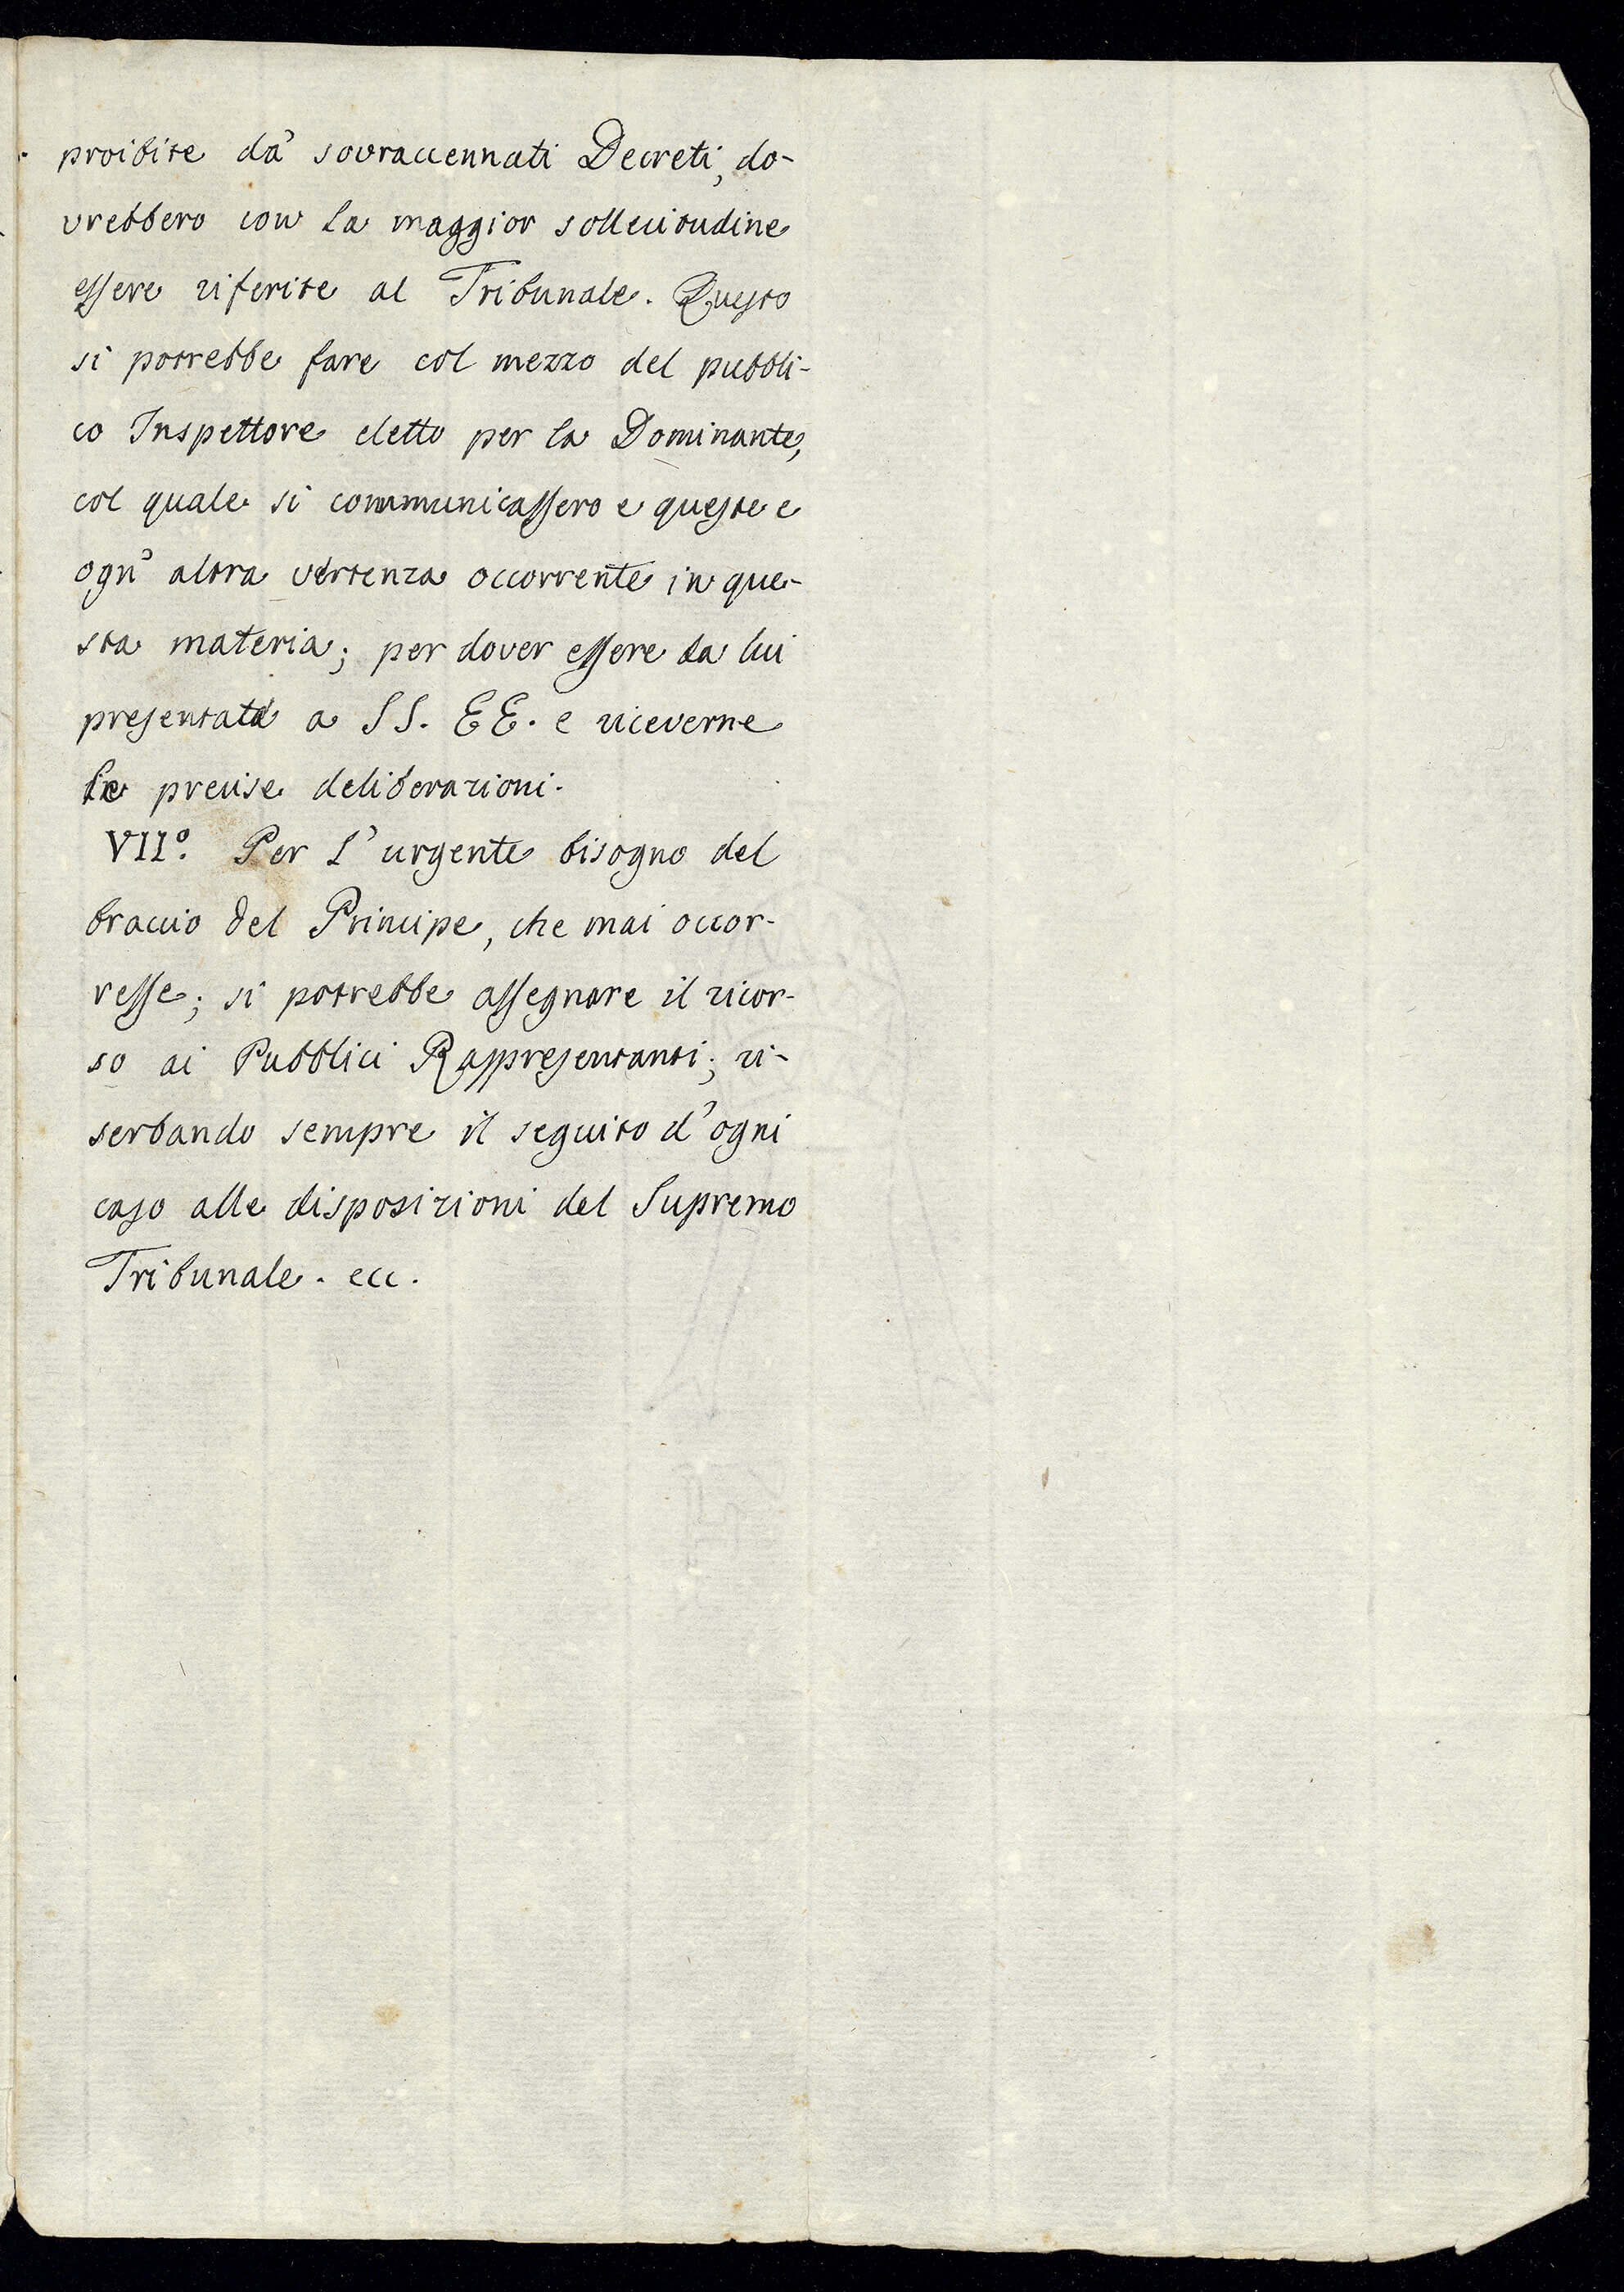 proibite da' sovraccennati Decreti, do-
vrebbero con la maggior sollecitudine
essere riferite al Tribunale. Questo
si potrebbe fare col mezzo del pubbli-
co Inspettore eletto per la Dominante,
col quale si communicassero e queste e
ogn' altra vertenza occorrente in que-
sta materia; per dover essere da lui
presentate a SS. EE. e riceverne
le precise deliberazioni.
VII.º Per l'urgente bisogno del
braccio del Principe, che mai occor-
resse; si potrebbe assegnare il ricor-
so ai Pubblici Rappresentanti; ri-
serbando sempre il seguito d'ogni
caso alle disposizioni del Supremo
Tribunale. ecc.